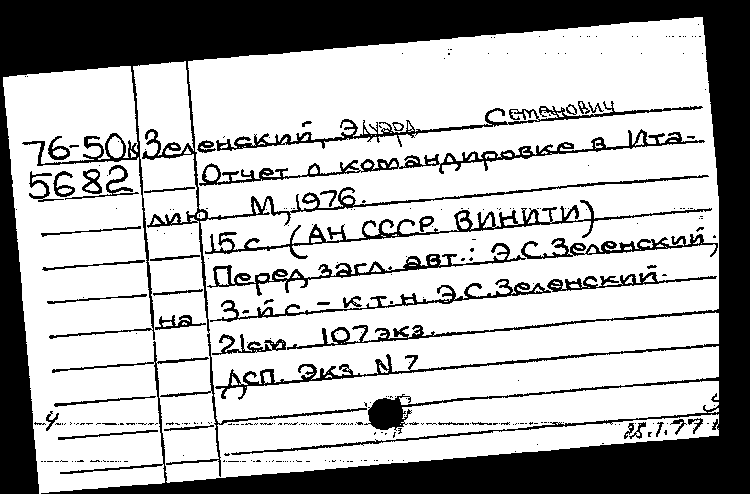 76-50к Зеленский, Эдуард Семенович
5682 Отчет о командировке в Ита-
лию. М., 1976.
15 с. (АН СССР. ВИНИТИ)
Перед загл. авт.: Э.С.Зеленский;
на 3-й с. – к.т.н. Э.С.Зеленский.
21 cm. 107 экз.
ДСП. Экз. N 7
ч
25.1.77